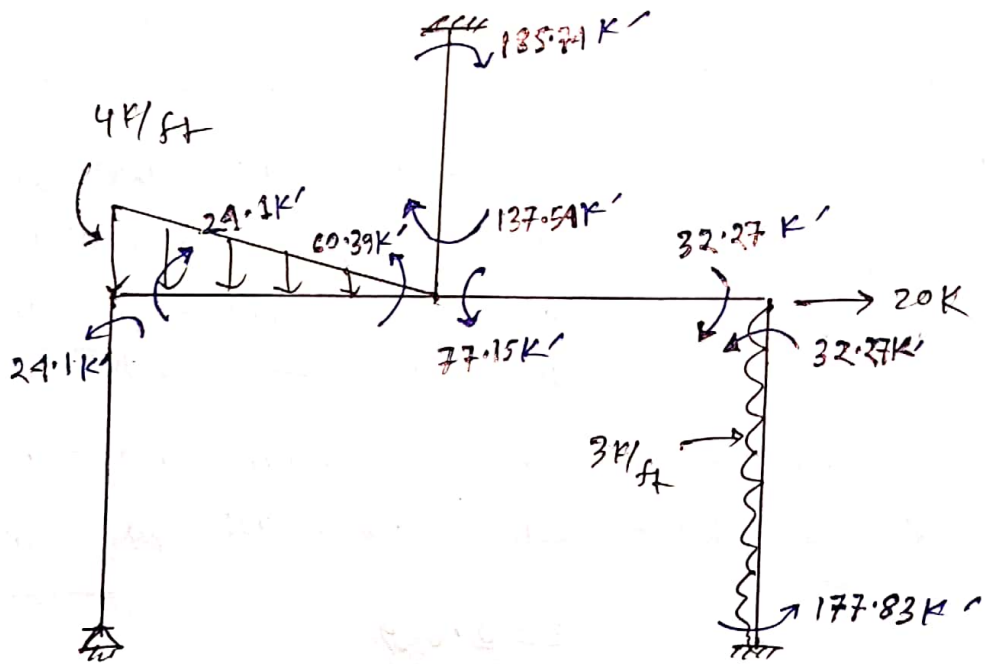 185.71 K'
4K/ft
24.1K'
60.39K'
137.54K'
32.27 K'
20K
24.1K'
77.15K'
32.27K'
3K/ft
177.83K'